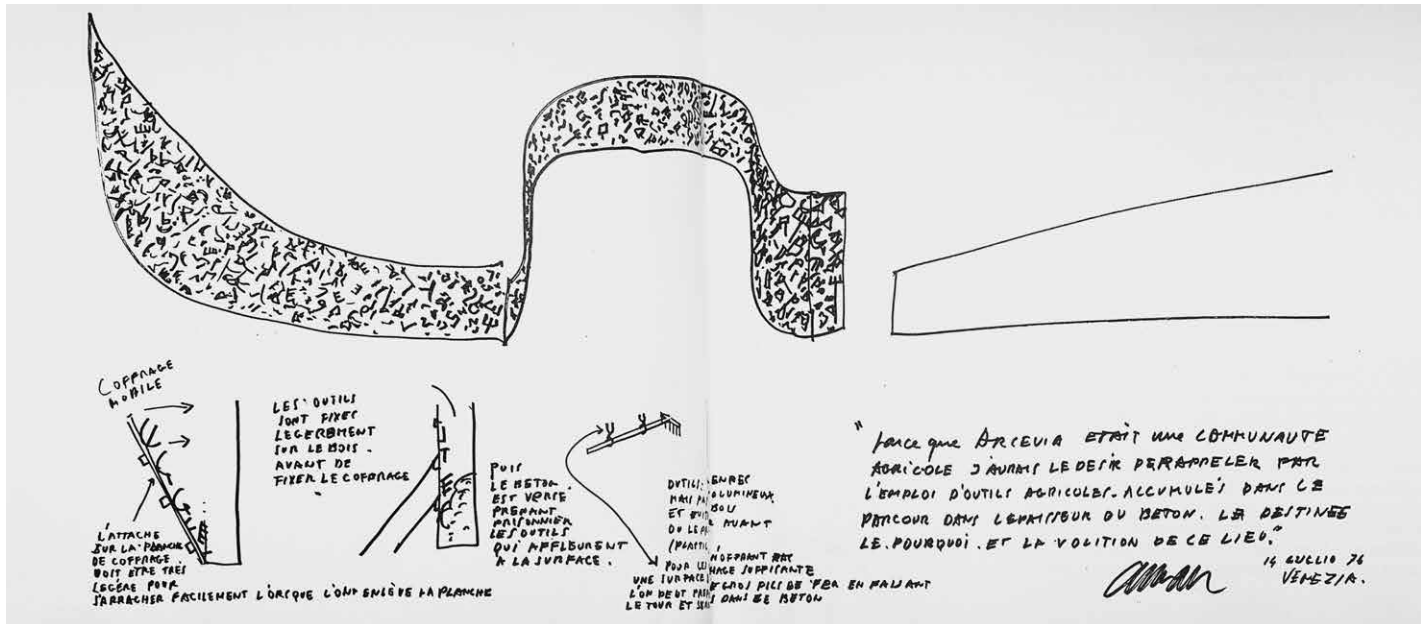 COFFRAGE
MOBILE
L'ATTACHE
SUR LA PLANCHE
DE COFFRAGE
DOIT ETRE TRES
LEGÈRE POUR
S'ARRACHER FACILEMENT LORSQUE L'ON ENLÈVE LA PLANCHE
LES OUTILS
SONT FIXES
LEGEREMENT
SUR LE BOIS.
AVANT DE
FIXER LE COFFRAGE
PUIS
LE BETON
EST VERSÉ
PRENANT
PRISONNIER
LES OUTILS
QUI AFFLEURENT
A LA SURFACE.
OUTILS
MAIS
ET
AVANT
(PLASTI
POUR
UNE SURFACE
L'ON PEUT GROS PICS DE FER EN FAISANT
LE TOUR ET DANS LE BETON
"parce que ARCEVIA ETAIT une COMMUNAUTE
AGRICOLE J'AURAIS LE DESIR DE RAPPELER PAR
L'EMPLOI D'OUTILS AGRICOLES. ACCUMULÉS DANS CE
PARCOUR DANS L'EPAISSEUR DU BETON. LA DESTINEE
LE. POURQUOI. ET LA VOLITION DE CE LIEU."
arman
14 LUGLIO 76
VENEZIA.